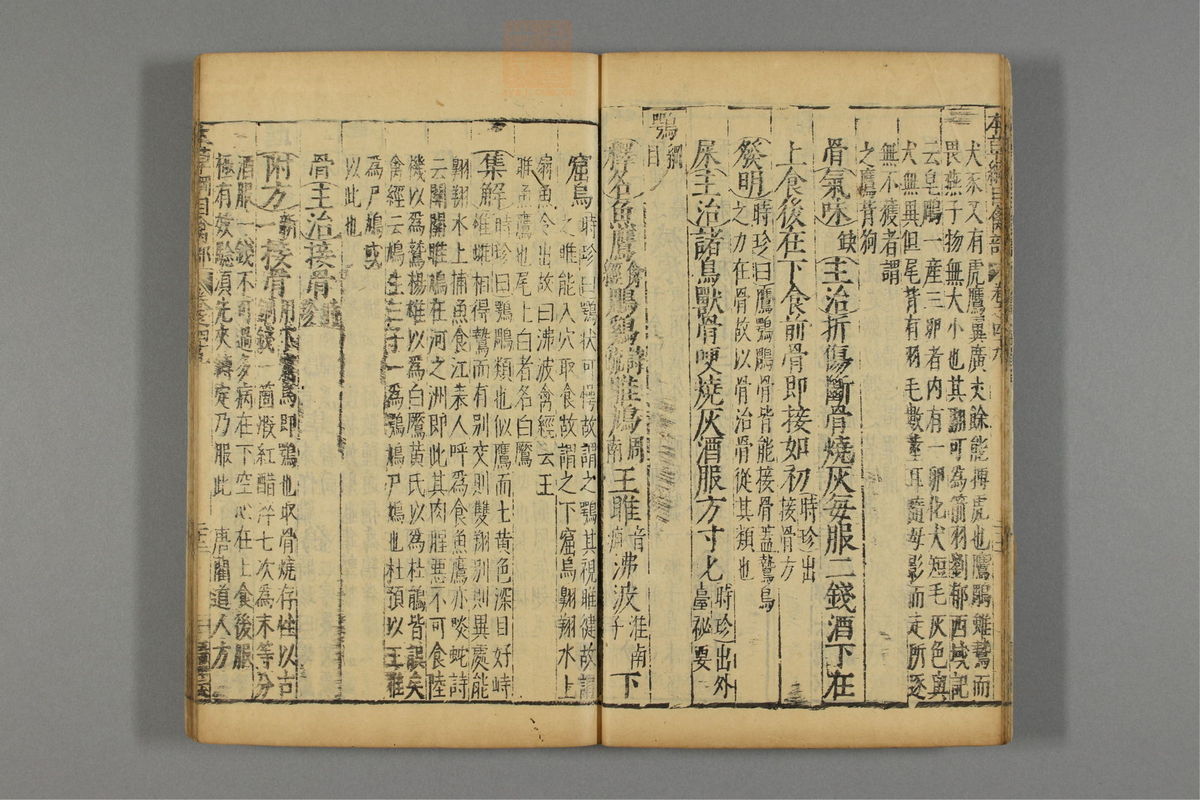 犬豕又有虎鷹翼廣丈餘能搏虎也鷹鵰雖鷙而
畏燕子物無大小也其翮可為箭羽劉郁西域記
云皂鵰一產三卵者內有一卵化犬短毛灰色與
犬無異但尾背有羽毛數莖耳隨母影而走所逐
無不獲者謂
之鷹背狗
骨氣味缺主治折傷斷骨燒灰每服二錢酒下在
上食後在下食前骨即接如初時珍出接骨方
發明時珍曰鷹鶚鵰骨皆能接骨蓋鷙鳥
之力在骨故以骨治骨從其類也
屎主治諸鳥獸骨哽燒灰酒服方寸匕時珍出外臺秘要
鶚綱目
釋名魚鷹禽經鵰雞詩疏雎鳩周南王雎音疽沸波淮南子下
窟烏時珍曰鶚狀可愕故謂之鶚其視雎健故謂
之雎能入穴取食故謂之下窟烏翱翔水上
扇魚令出故曰沸波禽經云王
雎魚鷹也尾上白者名白鷢
集解時珍曰鶚鵰類也似鷹而土黃色深目好峙
雄雌相得鷙而有別交則雙翔別則異處能
翱翔水上捕魚食江表人呼為食魚鷹亦啖蛇詩
云關關雎鳩在河之洲即此其肉腥惡不可食陸
機以為鷲楊雄以為白鷢黃氏以為杜鵑皆誤矣
禽經云鳩生三子一為鶚鳩尸鳩也杜預以王雎
為尸鳩或
以此也
骨主治接骨
附方新一接骨用下窟烏即鶚也取骨燒存性以古
銅錢一箇煅紅醋淬七次為末等分
酒服一錢不可過多病在下空心在上食後服
極有效驗須先夾縛定乃服此唐藺道人方